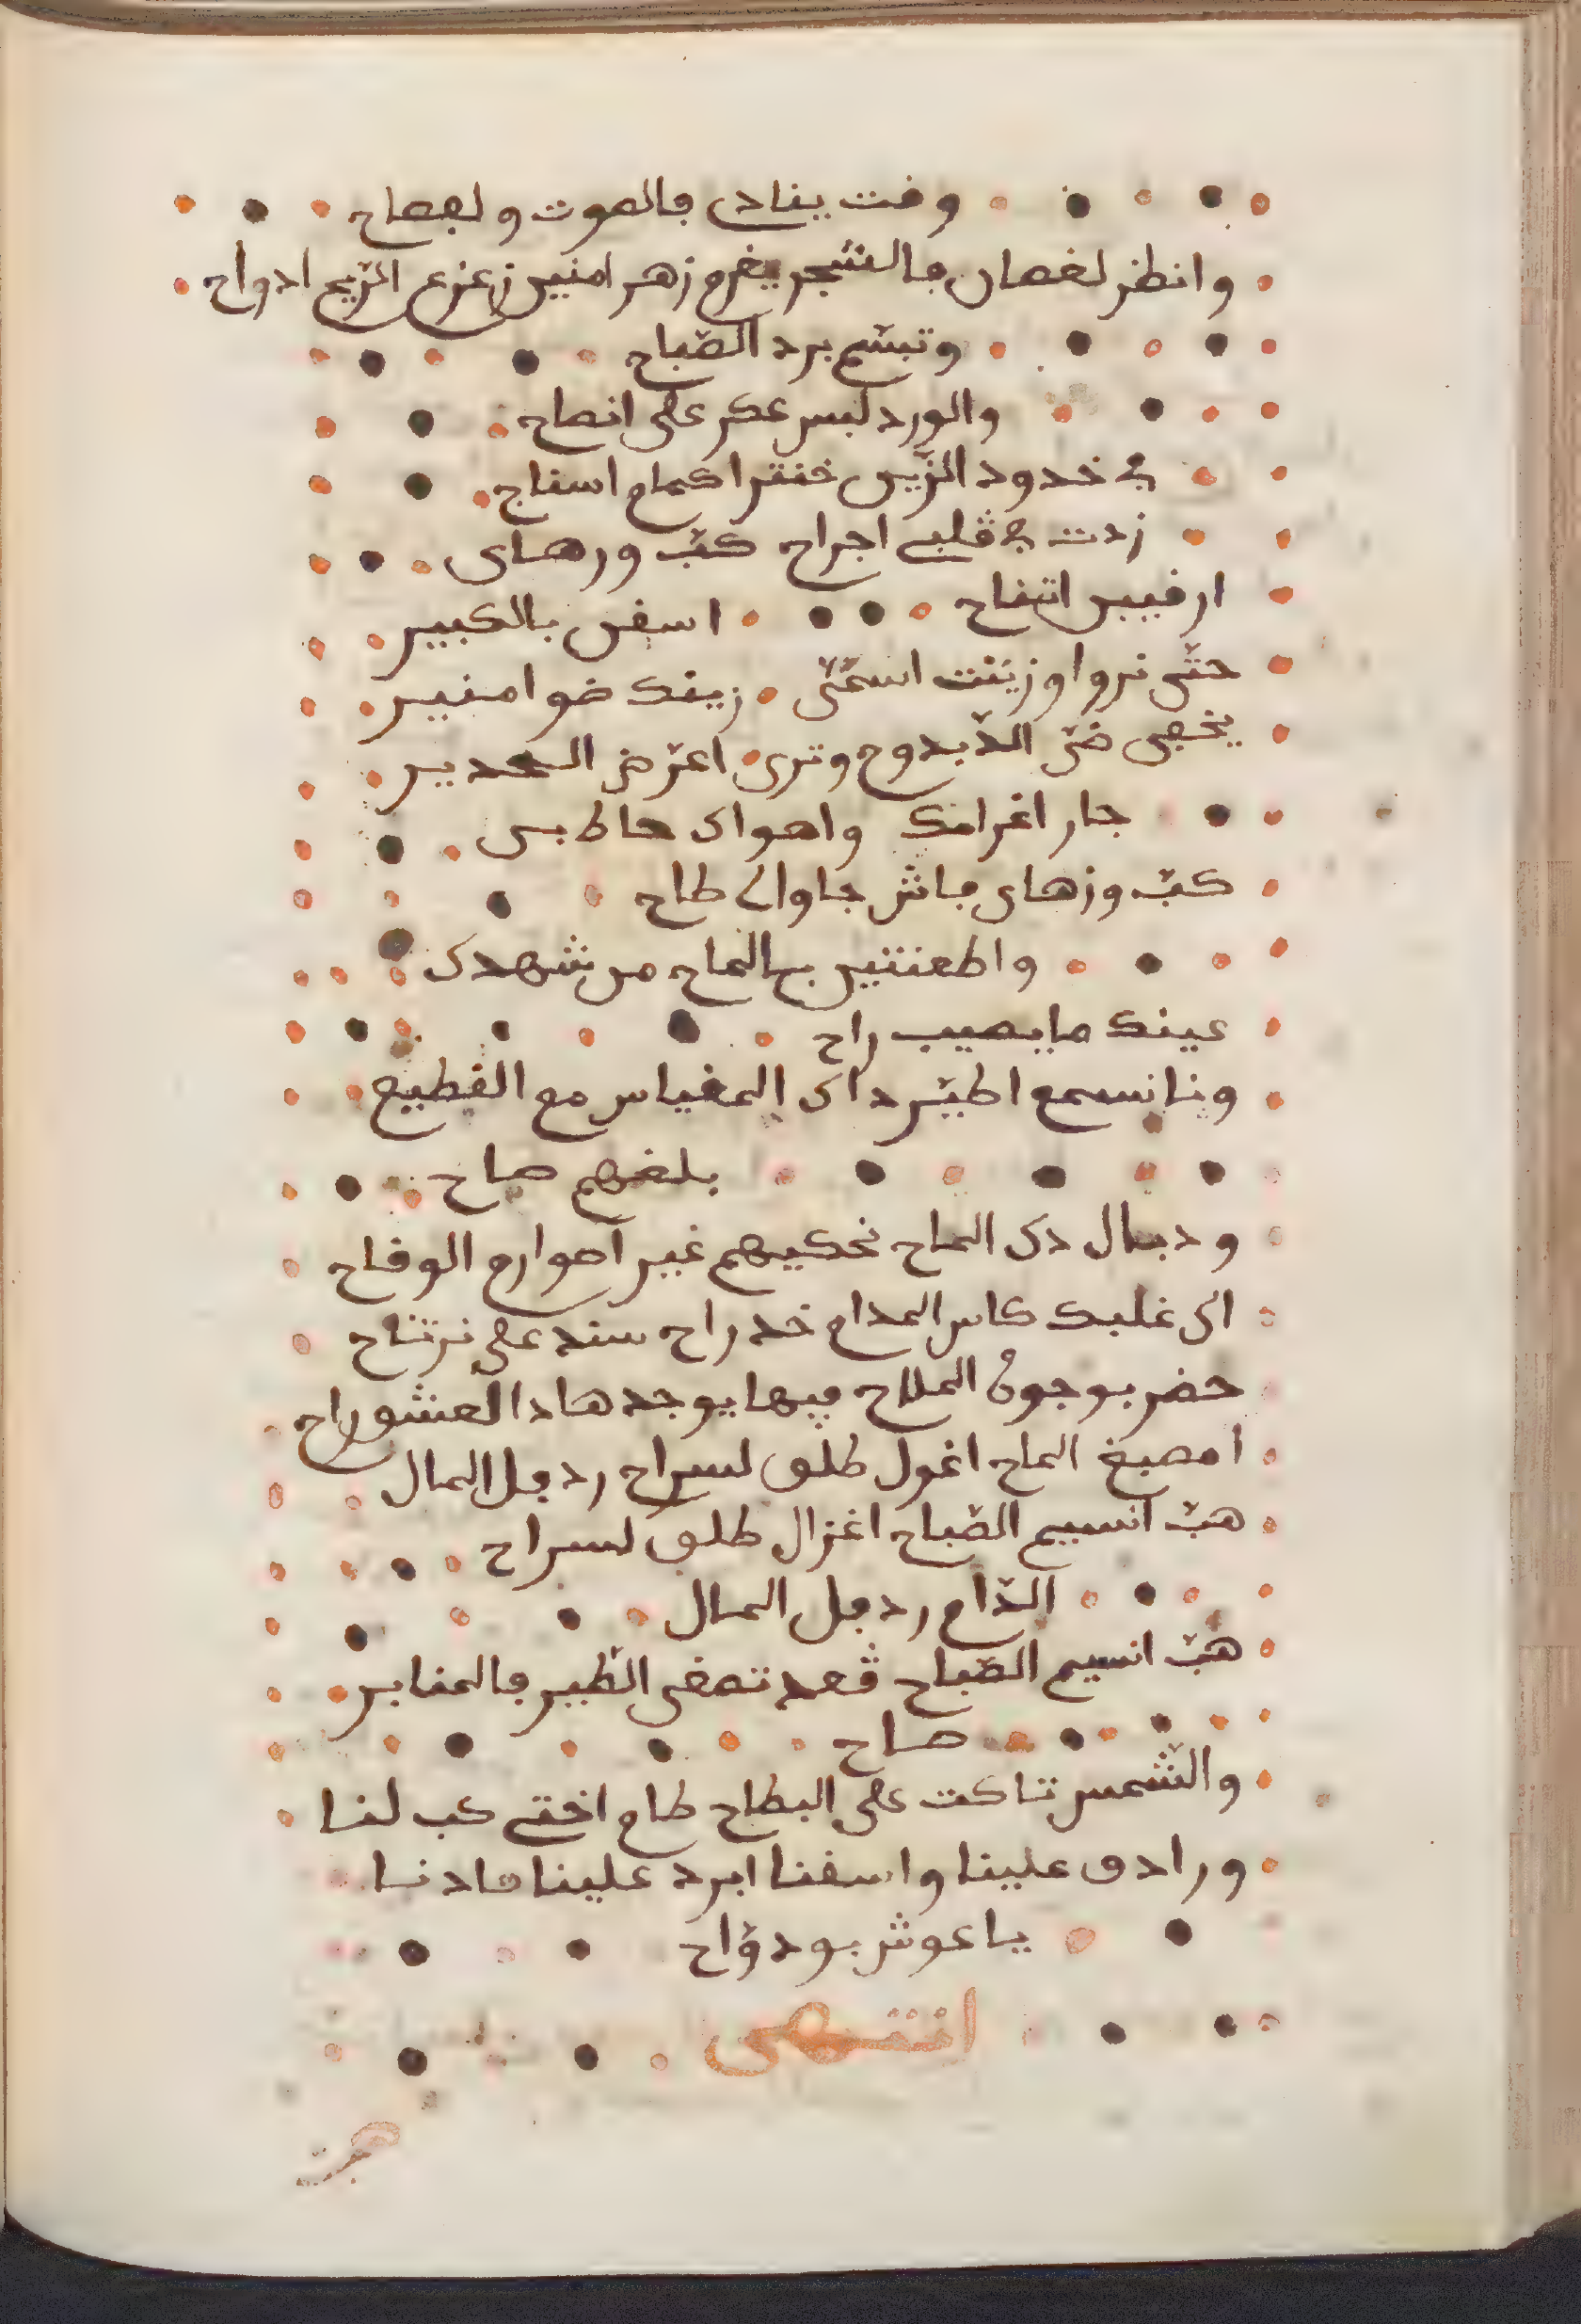 وقت ينادى فالصوت ولفصاح
وانظر لغصان فالشجر يفرح زهر امنير زعزع الريح ادواح
وتبسّم برد الصّباح
والورد لبس عكر على انصاح
في خدود الزّين خنتر اكمام اسناح
زدت في قلبي اجراح كبّ ورهاى
ارفيس اتفاح اسقى بالكبير
حتّى نروا وزيّنت اسمّى زينك ضوا منير
يخفى ضىّ الدّبدوح وترى اعرّض السحدير
جار اغرامك واهواى حاط بى
كبّ وزهاى فاش جاوا لى طاح
واطعنتين بالماح من شهدى
عينك ما يصيب راح
ونا نسمع اطيّر داى المقياس مع القطيع
بلغهم صاح
ودبال دى الماح نحكيهم غير اصوارم الوقاح
اى غلبك كاس المدام خد راح سند على نرتاح
حضر بوجوه الملاح فيها يوجد هادا العشو راح
امصبغ الماح اغول طلق لسراح رد فل المال
هبّ انسيم الصّباح اغزال طلق لسراح
الدّام رد فل المال
هبّ انسيم الصّباح ڨعد تصغى الطّير فالمنابر
صاح
والشّمس تاكت على البطاح طاح اختى كب لنا
ورادف علينا واسقنا ابرد علينا فادنا
يا عوش بو دوّاح
انتهى
هبت